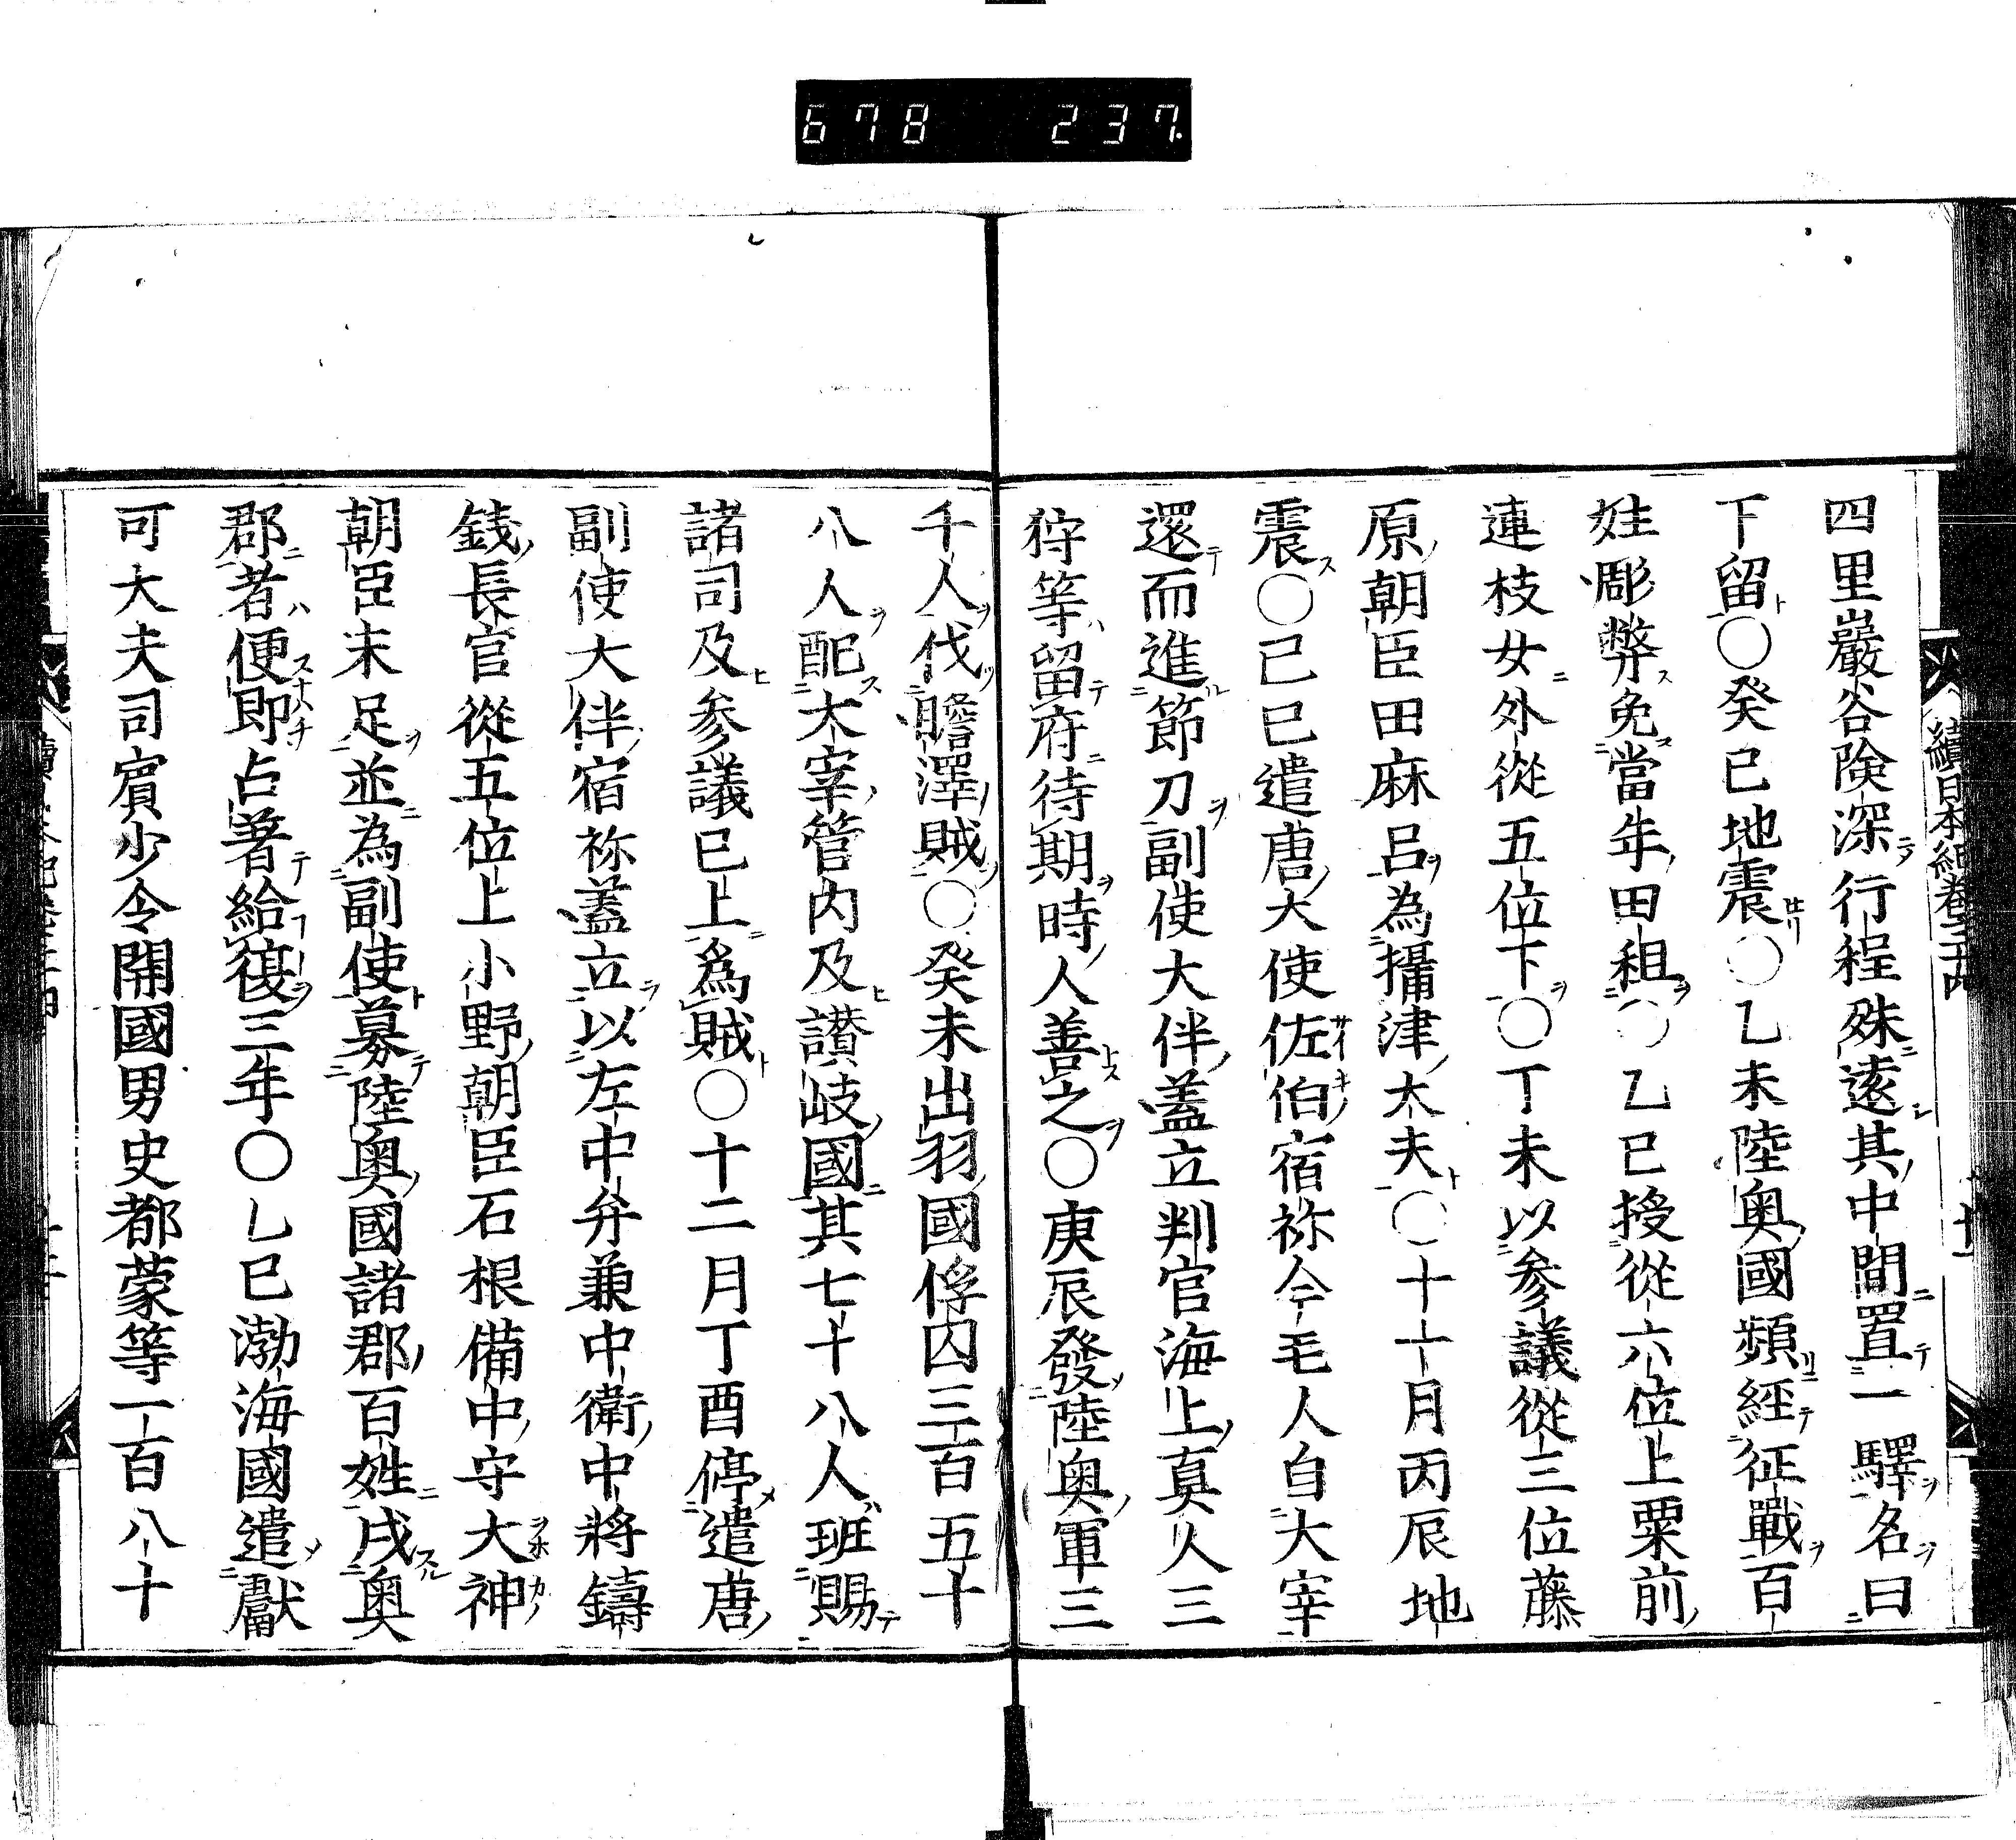 678 237.
續日本紀巻三十四
四里巖谷険深行程殊遠其中間置一驛名曰
下留○癸巳地震○乙未陸奥國頻經征戰百
姓彫弊免當年田租○乙巳授從六位上粟前
連枝女外從五位下○丁未以参議從三位藤
原朝臣田麻呂為攝津大夫○十一月丙辰地
震○己巳遣唐大使佐伯宿祢今毛人自大宰
還而進節刀副使大伴盖立判官海上真人三
狩等留府待期時人善之○庚辰發陸奥軍三
千人伐膽澤賊○癸未出羽國俘囚三百五十
八人配大宰管内及讃岐國其七十八人班賜
諸司及参議已上為賊○十二月丁酉停遣唐
副使大伴宿祢盖立以左中弁兼中衛中将鑄
錢長官從五位上小野朝臣石根備中守大神
朝臣末足並為副使募陸奥國諸郡百姓戍奥
郡者便即占著給復三年○乙巳渤海國遣獻
可大夫司賓少令開國男史都蒙等一百八十